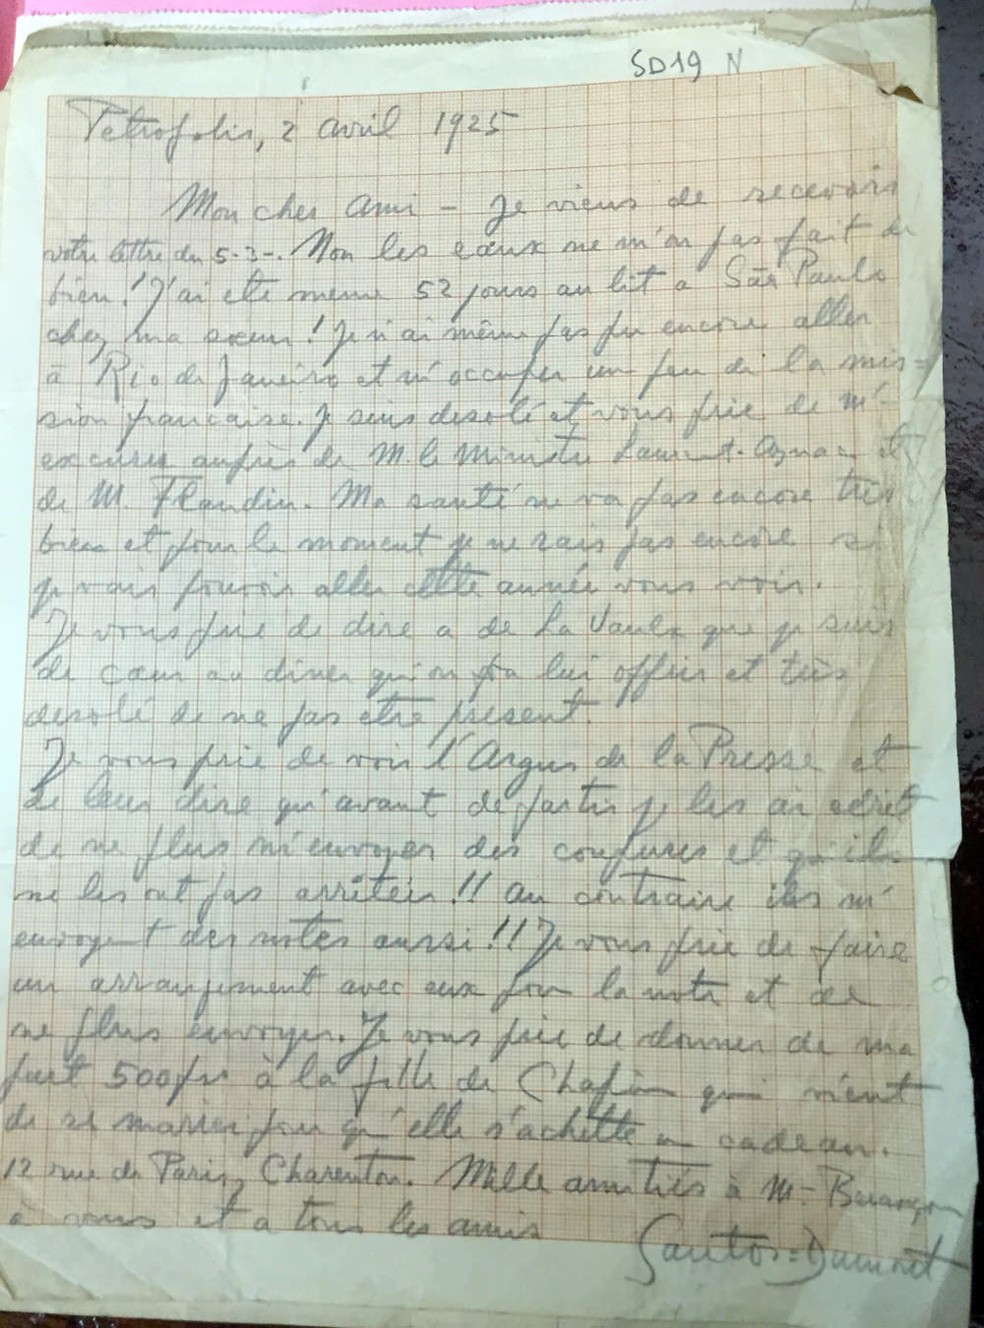 SD19 N
Petropolis, 2 avril 1925
Mon cher Ami - Je viens de recevoir
votre lettre du 5-3-. Non les eaux ne m'on pas fait du
bien! J'ai ete meme 52 jours au lit a São Paulo
chez ma sœur! Je n'ai même pas pu encore aller
à Rio de Janeiro et m'occuper un peu de la mis-
sion française. Je suis desolé et vous prie de m'
excuser auprès de M. le Ministre Laurent-Eynac et
de M. Flandin. Ma santé ne va pas encore très
bien et pour le moment je ne sais pas encore si
je vais pouvoir aller cette année vous voir.
Je vous prie de dire a de La Vaulx que je suis
de cœur au diner qu'on va lui offrir et très
desolé de ne pas etre present.
Je vous prie de voir l'Argus de la Presse et
de leur dire qu'avant de partir je les ai ecrit
de ne plus m'envoyer des coupures et qu'ils
ne les ont pas arrêteés!! au contraire ils m'
envoyent des notes aussi!! Je vous prie de faire
un arrangement avec eux pour la note et de
ne plus envoyer. Je vous prie de donner de ma
part 500 frs à la fille de Chapin qui vient
de se marier pour qu'elle s'achette un cadeau.
12 rue de Paris, Charenton. Mille amitiés à M-
à vous et a tous les amis
Santos=Dumont